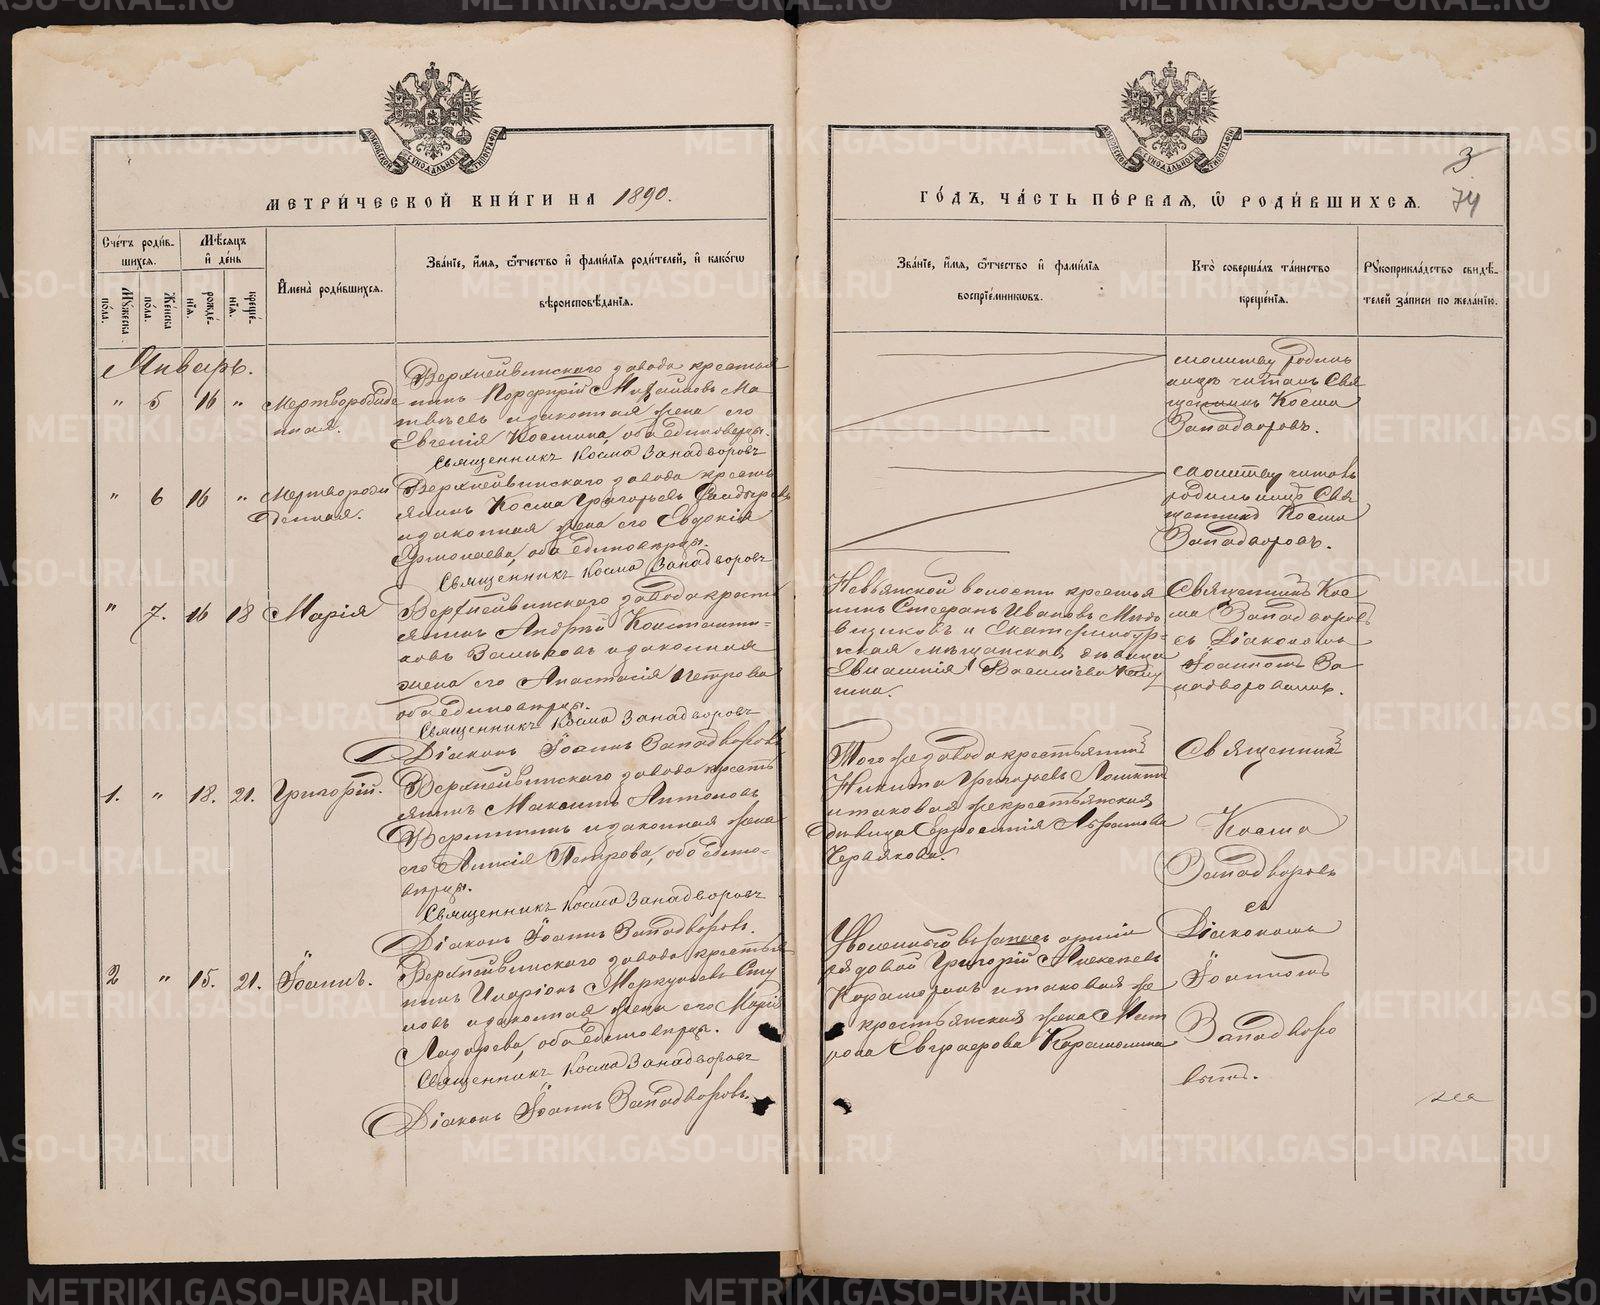 МЕТРИ́ЧЕСКОЙ КНИ́ГИ НА 1890.
Сче́тъ роди́в-
шихся.
Му́жеска по́ла.
Же́нска по́ла.
Мѣ́сяцъ и̂ де́нь
рожде́-
нїя.
креще́-
нїя.
И҆мена̀ роди́вшихся.
Зва́нїе, и҆́мя, ѻ҆́тчество и҆ фами́лїя роди́телей, и҆ како́гѡ
вѣроисповѣ́данїя.
Январь.
" 5 16 " Мертворожде
нная.
Верхнейвинскаго завода крестья
нинъ Порфирій Михайловъ Ма
твѣевъ и законная жена его
Евгенія Космина, оба единоверцы.
Священникъ Косма Западворовъ
" 6 16 " Мертворож
денная.
Верхнейвинскаго завода кресть
янинъ Косма Григорьевъ
и законная жена его Евдокія
Ермолаева, оба единоверцы.
Священникъ Косма Западворовъ
" 7. 16 18 Марія
Верхнейвинскаго завода кресть
янинъ Андрей Константи-
новъ и законная
жена его Анастасія Петрова
оба единоверцы.
Священникъ Косма Западворовъ
Діаконъ Іоаннъ Западворовъ
1. " 18. 21. Григорій.
Верхнейвинскаго завода кресть
янинъ Максимъ Антоновъ
и законная жена
его Петрова, оба едино-
верцы.
Священникъ Косма Западворовъ
Діаконъ Іоаннъ Западворовъ.
2 " 15. 21. Іоаннъ.
Верхнейвинскаго завода крестья
нинъ Иларіонъ Меркурьевъ
и законная жена его Марія
Лазарева, оба единоверцы.
Священникъ Косма Западворовъ
Діаконъ Іоаннъ Западворовъ.
ГО́ДЪ, ЧА́СТЬ ПЕ́РВАЯ, Ѡ҆ РОДИ́ВШИХСЯ.
3
74
Зва́нїе, и҆́мя, ѻ҆́тчество и҆ фами́лїя
воспрїе́мникѡвъ.
Кто̀ соверша́лъ та́инство
креще́нїя.
Рꙋкоприкла́дство свидѣ́-
телей за́писи по жела́нїю.
молитву родиль
ницѣ читалъ Свя
щенникъ Косма
Западворовъ.
молитву читалъ
родильницѣ Свя
щенникъ Косма
Западворовъ.
Невьянской волости крестья
нинъ Стефанъ Ивановъ
и Екатеринбур-
ская мѣщанская дѣвица
Васильева
Священникъ Кос
ма Западворовъ
съ Діакономъ
Іоанномъ За
падворовымъ.
Того же завода крестьянинъ
Никита Григорьевъ
и таковая же крестьянская
дѣвица
Червякова.
Священникъ
Косма
Западворовъ
съ
Діакономъ
Іоанномъ
Западворо
вымъ.
Уволенный въ запасъ арміи
рядовой Григорій Алексѣевъ
и таковая же
крестьянская жена
Евграфова